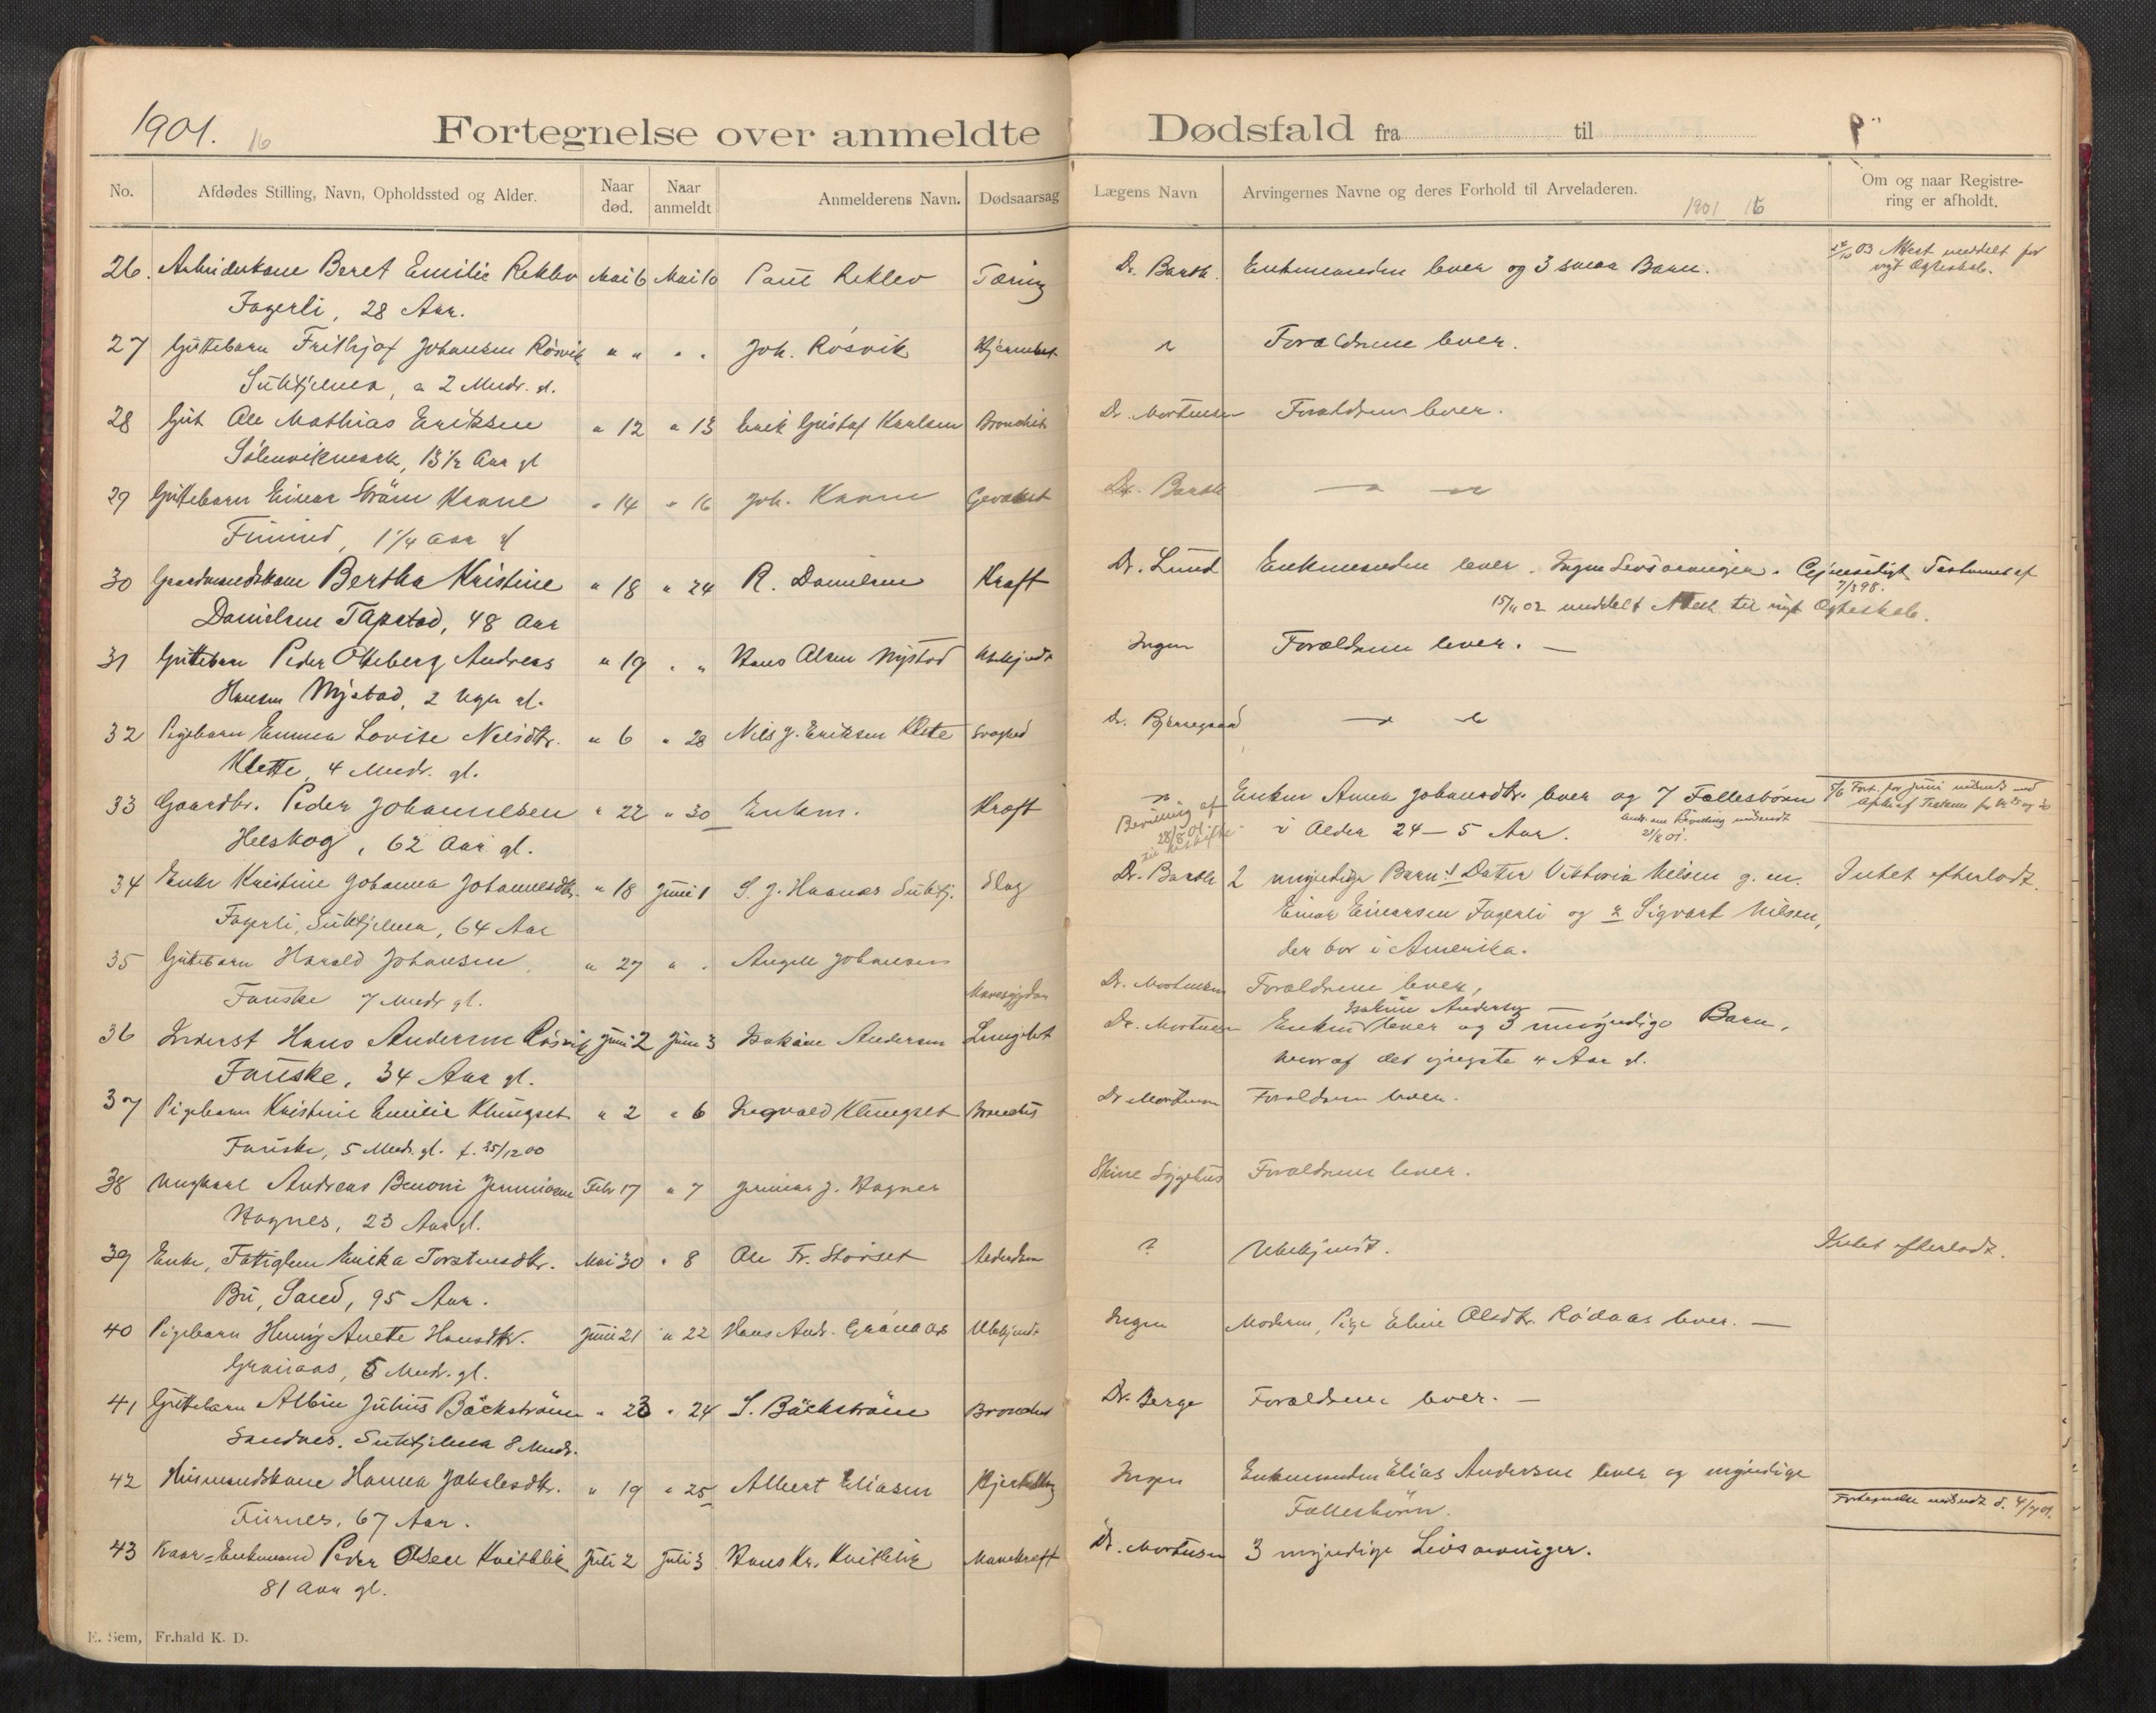 1901. 16
Fortegnelse over anmeldte Dødsfald fra til
No. Afdødes Stilling, Navn, Opholdssted og Alder. Naar død. Naar anmeldt Anmelderens Navn. Dødsaarsag Lægens Navn Arvingernes Navne og deres Forhold til Arveladeren. Om og naar Registrering er afholdt.
1901 16
26. Arbeiderkone Beret Emilie Reklev Mai 6 Mai 10 Paul Reklev Tæring Dr. Barth. Enkemanden lever og 3 smaa Barn. 03 Attest meddelt for
Fagerli, 28 Aar. nyt Ægteskab.
27 Guttebarn Frithjof Johansen Rösvik " " " " Joh. Rösvik " Forældrene lever.
Sulitjelma, a 2 Mndr. gl.
28 Gut Ole Mathias Eriksen " 12 " 13 Erik Gustaf Karlsen Bronchit Dr. Mortensen Forældrene lever.
13½ Aar gl
29 Guttebarn Einar Ström " 14 " 16 Joh. Dr. Barth " "
Finneid, 1¼ Aar gl
30 Gaardmandskone Bertha Kristine " 18 " 24 R. Danielsen Kræft Dr. Lund Enkemanden lever. Ingen Livsarvinger. Gjensidigt Testament af
7/3 98.
Danielsen Tapstad, 48 Aar 15/11 02 meddelt Attest til nyt Ægteskab.
31 Guttebarn Peder Otteberg Andreas " 19 " " Hans Olsen Nystad Ubekjendt Ingen Forældrene lever. —
Hansen Nystad, 2 Uger gl.
32 Pigebarn Emma Lovise Nilsdtr. " 6 " 28 Nils J. Eriksen Klette Svaghed Dr. Bjernegaard " "
Klette, 4 Mndr. gl.
33 Gaardbr. Peder Johannessen " 22 " 30 Enken. Kræft " Enken Anna Johansdtr. lever og 7 Fællesbörn
Helskog, 62 Aar gl. Bevilling af 28/8 01 i Alder 24 — 5 Aar.
34 Enke Kristine Johanna Johannesdtr. " 18 Juni 1 S. J. Haanes Sulitj. Slag Dr. Barth 2 myndige Barn: 1 Datter Viktoria Nilsen g. m. Intet efterladt.
Fagerli, Sulitjelma, 64 Aar Einar Einarsen Fagerli og 2 Sigvart Nilsen,
der bor i Amerika.
35 Guttebarn Harald Johansen " 27 " " Angell Johansen Mavesygdom Dr. Mortensen Forældrene lever,
Fauske 7 Mndr gl.
36 Inderst Hans Andersen Rösvik Juni 2 Juni 3 Isakine Andersen Dr. Mortensen Enken Isakine Andersen lever og 3 umyndige Barn,
Fauske, 34 Aar gl. hvoraf det yngste 4 Aar gl.
37 Pigebarn Kristine Emilie Klungset " 2 " 6 Ingvald Klungset Bronchit Dr Mortensen Forældrene lever.
Fauske, 5 Mndr. gl. f. 25/12 00
38 Ungkarl Andreas Benoni Jeremiasen Febr 17 " 7 Jeremias J. Hagnes Sygehus Forældrene lever.
Hagnes, 23 Aar gl.
39 Enke, Fattiglem Erika Torstensdtr. Mai 30 " 8 Ole Fr. Storset Alderdom ? Ubekjendt. Intet efterladt.
Bu, Sand, 95 Aar.
40 Pigebarn Henny Anette Hansdtr. Juni 21 " 22 Hans Andr. Granaas Ubekjendt Ingen Moderen, Pige Eline Olsdtr. Rödaas lever. —
Granaas, 5 Mndr. gl.
41 Guttebarn Albin Julius Bäckström " 23 " 24 S. Bäckström Bronchit Dr. Berge Forældrene lever. —
Sandnes. Sulitjelma 8 Mndr.
42 Husmandskone Hanna Jakobsdtr. " 19 " 25 Albert Eliasen Ingen Enkemanden Elias Andersen lever og myndige
Furnes, 67 Aar. Fællesbörn. Fortegnelse indsendt d. 4/7 01.
43 Kaar=Enkemand Peder Olsen Kvitblik Juli 2 Juli 3 Hans Kr. Kvitblik Mavekræft Dr. Mortensen 3 myndige Livsarvinger.
81 Aar gl.
E. Sem, Fr.hald K. D.